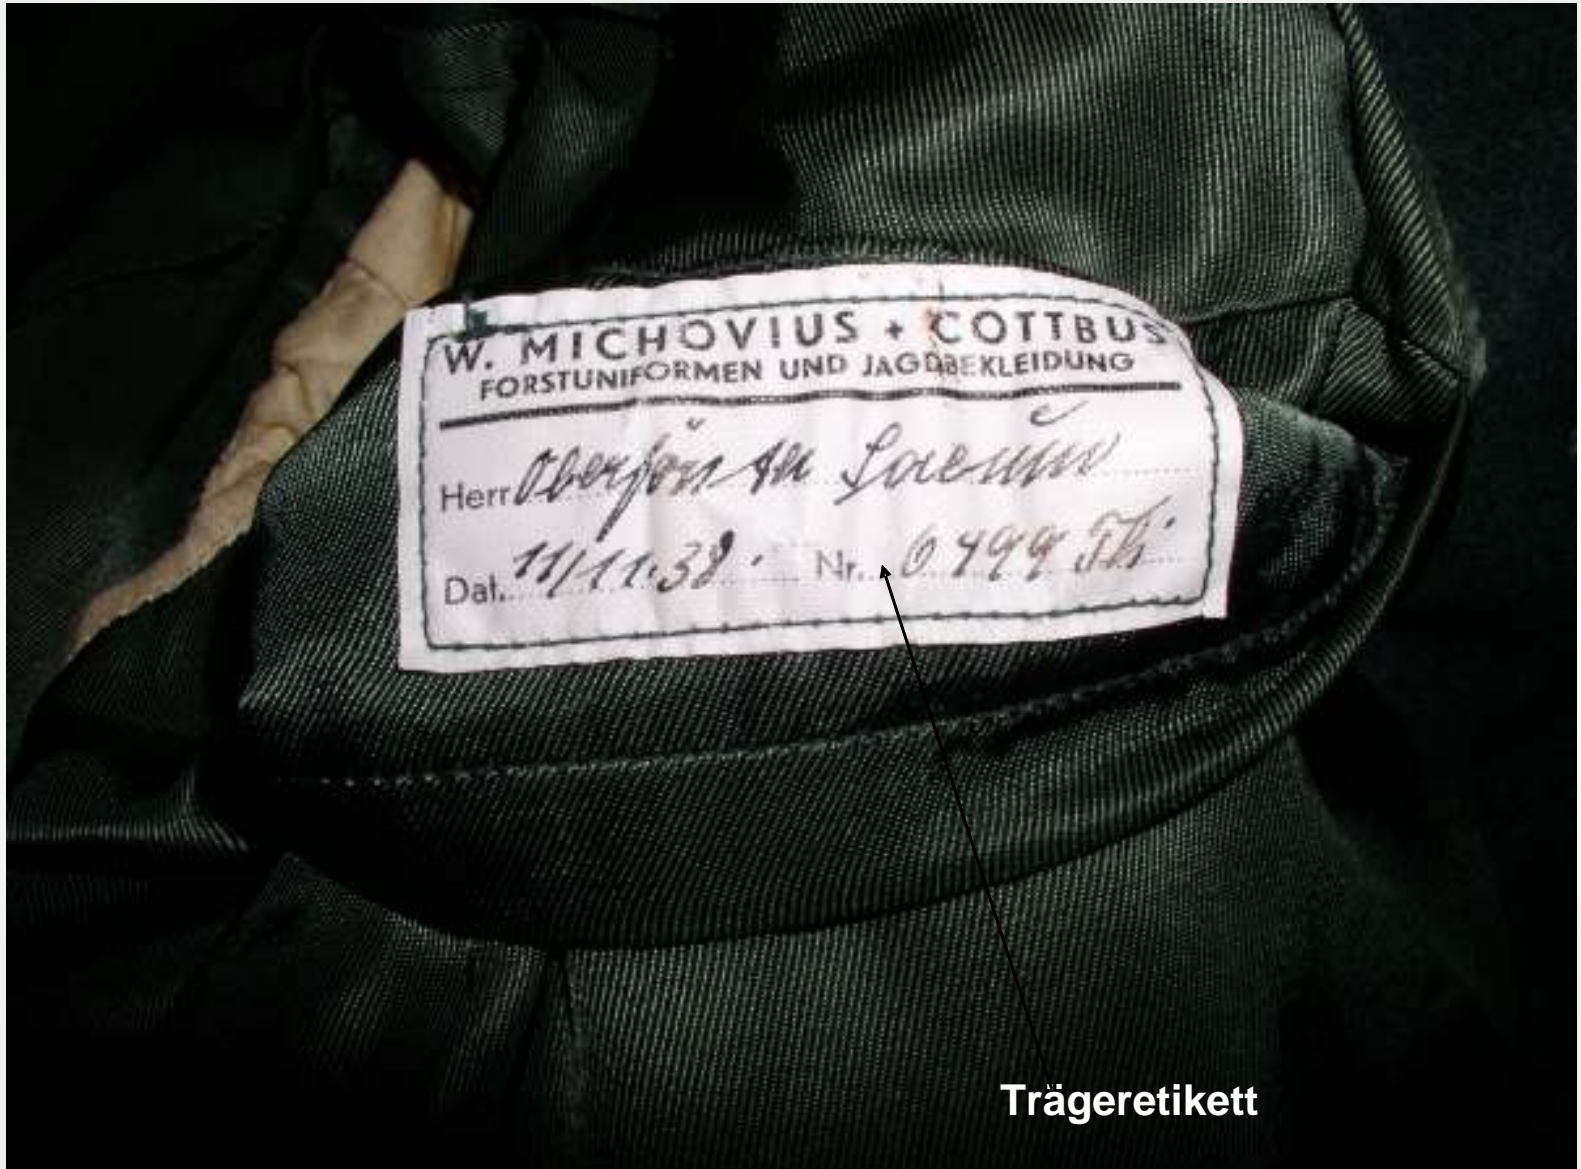 W. MICHOVIUS + COTTBUS
FORSTUNIFORMEN UND JAGDBEKLEIDUNG
Herr Oberförster
Dat. 11/11.38. Nr. 6499 Th.
Trägeretikett